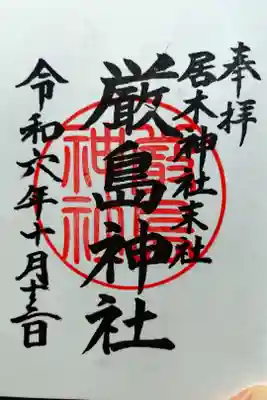 奉拝
居木神社末社
厳島神社
令和六年十月十三日